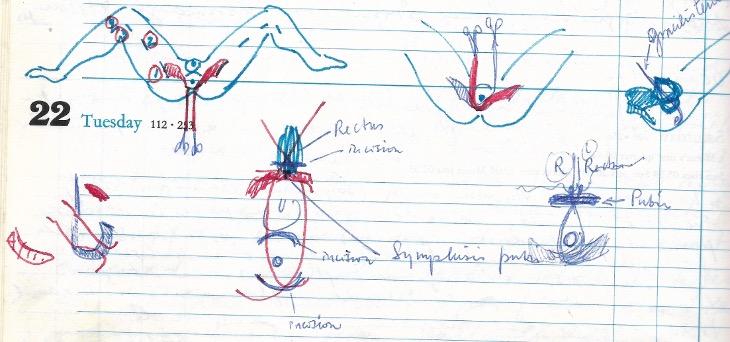 gracilis
22 Tuesday 112 • 253
Rectus
incision
R
Rectum
Pubis
incision Symphisis pubis
incision
1
2